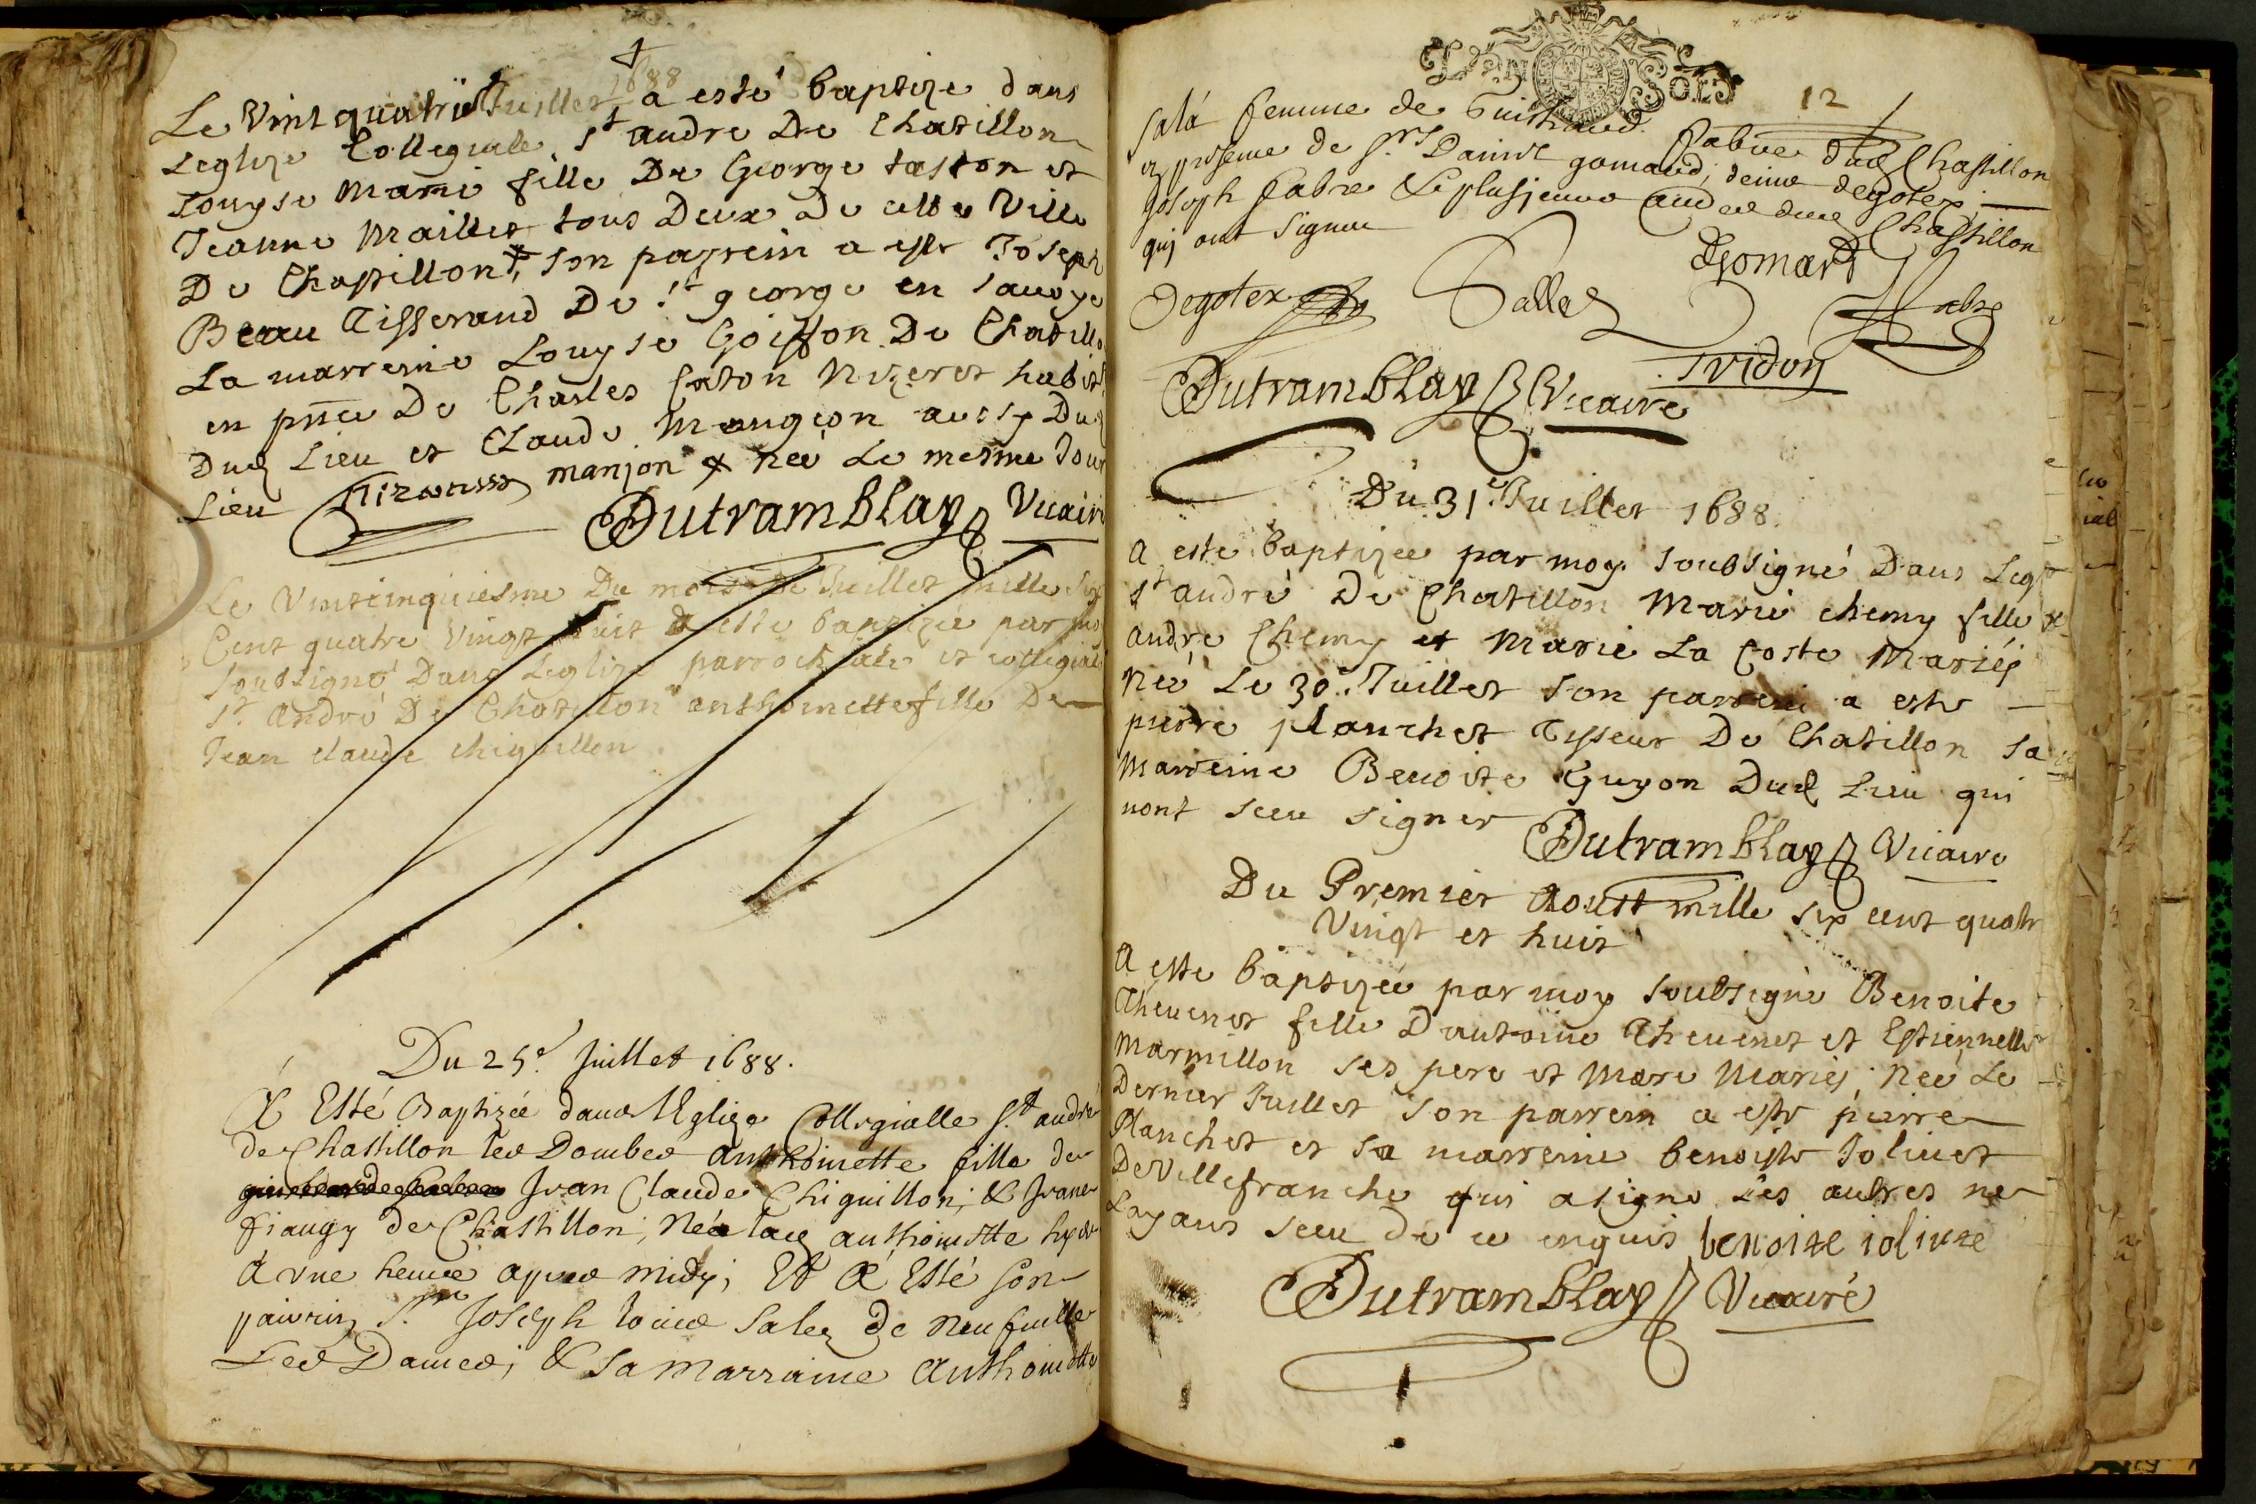 1688
Le Vint quatrie Juillet a esté baptize dans
Leglize Collegiale St andre De Chatillon
Louyse Marie fille De George taston et
Jeanne Maillet tous Deux De cette Ville
De Chastillon, son parrein a este Joseph
Beau Tisserand De St george en Sauoye
La marreine Louyse Goiffon De Chatillo
en pnce De Charles Caton Nizeret habit
Dud Lieu et Claude Mongeon aussy Dud
Lieu manjon x née Le mesme Jour
Dutramblay Vicaire
Le Vintcinquiesme Du mois De Juillet mille Six
Cent quatre Vingt huit a esté baptizée par mo
soubsigné Dans Leglize parrochiale et collegiale
St André De Chatillon anthoinette fille De
Jean claude chiquillon
Du 25e Juillet 1688.
A Esté Baptizée dans l'Eglize Collegialle St. andré
de Chastillon les Dombes anthoinette fille de
Jean Claude Chiquillon, & Jeane
fiaugy de Chastillon; Née lad anthoinette hyer
A vne heure apres midy; Et A Esté son
parrin, Sr Joseph Louis Sales de Neufuille
Les Dames; & sa Marraine Anthoinette
12
Sala femme de Guichard Fabre dud Chastillon
en presence de Srs Daniel gomard, deine degotex
Joseph fabre Le plus jeune dud Chastillon
qui ont signee
Degotex Salles Gomard fabre
Tridon
Dutramblay Vicaire
Du 31e Juillet 1688.
a este baptizee par moy soubsigné Dans Legl
St andré De Chatillon Marie chemy fille
andre Chemy et Marie La Coste Mariés
Née Le 30e Juillet son parrein a este
pierre planchet Tisseur De Chatillon sa
Marreine Benoite Guyon Dud Lieu qui
nont sceu signer
Dutramblay Vicaire
Du Premier Aoust mille six cent quatr
Vingt et huit
A esté baptizée par moy soubsigné Benoite
Theuenet fille Dantoine Theuenet et Estiennette
Marmillon ses pere et Mere Mariés; Née Le
Dernier Juillet son parrein a este pierre
Planchet et sa marreine benoiste Joliuet
De Villefranche qui a signé Les autres ne
Layans sceu De ce enquis benoite iolivte
Dutramblay Vicaire